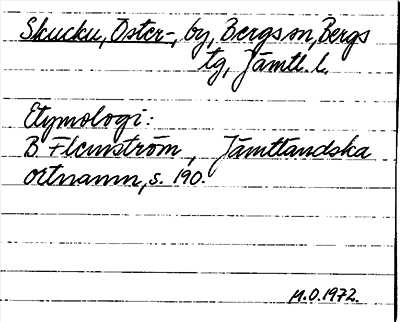 Skucku, Öster-, by, Bergs sn, Bergs
tg, Jämtl. l.
Etymologi:
B. Flemström, Jämtländska
ortnamn, s. 190.
M.O. 1972.